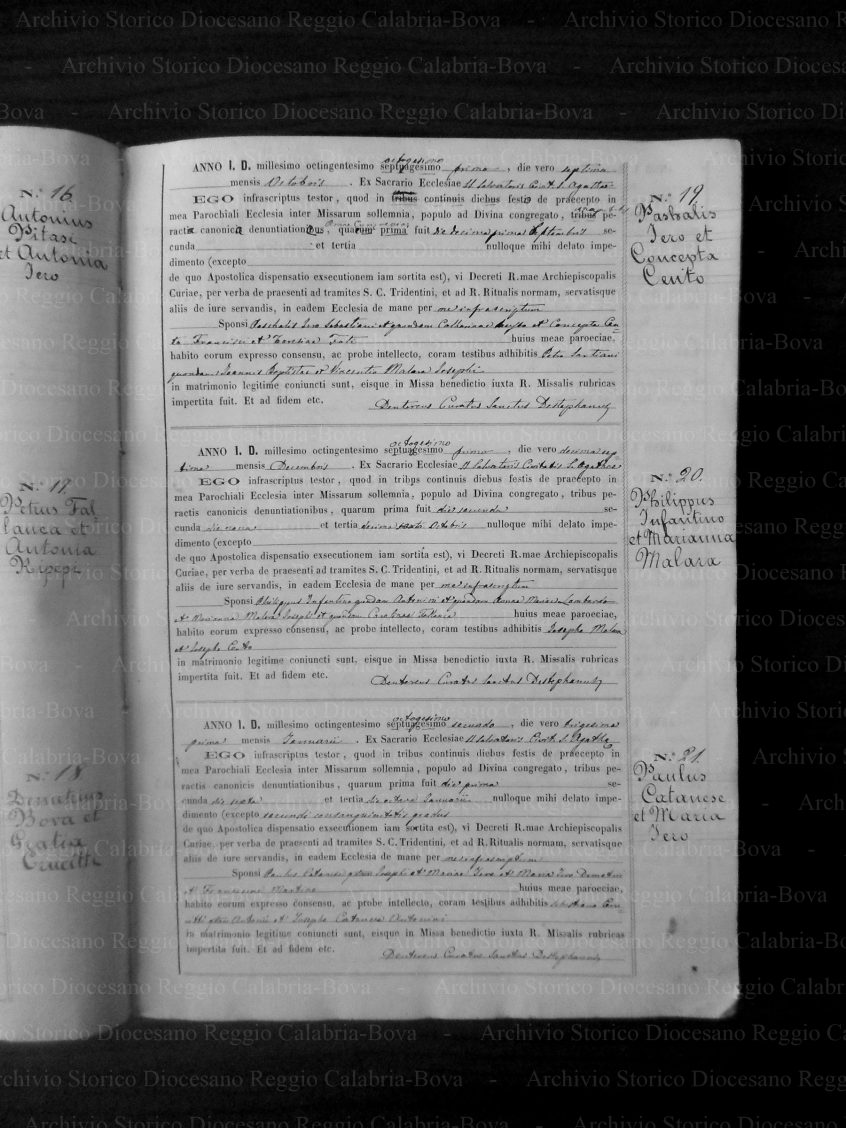 Archivio Storico Diocesano Reggio Calabria-Bova
N.º 16
Antonius
Pitasi
et Antonia
Iero
N.º 17
Petrus Fal
lauca et
Antonia
Ripepi
N.º 18
Demetrius
Bova et
Gratia
ANNO I. D. millesimo octingentesimo septuagesimo octogesimo primo, die vero septima
mensis Octobris. Ex Sacrario Ecclesiae SS Salvatoris Civit. S. Agathae
EGO infrascriptus testor, quod in tribus continuis diebus festis de praecepto in
mea Parochiali Ecclesia inter Missarum sollemnia, populo ad Divina congregato, tribus pe-
ractis canonica denuntiationibus, quarum prima fuit die decima prima Septembris se-
cunda et tertia nulloque mihi delato impe-
dimento (excepto
de quo Apostolica dispensatio exsecutionem iam sortita est), vi Decreti R.mae Archiepiscopalis
Curiae, per verba de praesenti ad tramites S. C. Tridentini, et ad R. Ritualis normam, servatisque
aliis de iure servandis, in eadem Ecclesia de mane per me infrascriptum
Sponsi Paschalis Iero Sebastiani et quondam Catharinae et Concepta Cen
to Francisci et Teresiae Foti huius meae paroeciae,
habito eorum expresso consensu, ac probe intellecto, coram testibus adhibitis Petro
quondam Ioannis Baptistae et Vincentio Malara Iosephi
in matrimonio legitime coniuncti sunt, eisque in Missa benedictio iuxta R. Missalis rubricas
impertita fuit. Et ad fidem etc.
Deutereus Curatus Sanctus Destephanus
N.º 19
Pashalis
Iero et
Concepta
Cento
ANNO I. D. millesimo octingentesimo septuagesimo octogesimo primo, die vero decima sep
tima mensis Decembris. Ex Sacrario Ecclesiae SS Salvatoris Civitatis S. Agathae
EGO infrascriptus testor, quod in tribus continuis diebus festis de praecepto in
mea Parochiali Ecclesia inter Missarum sollemnia, populo ad Divina congregato, tribus pe-
ractis canonicis denuntiationibus, quarum prima fuit die secunda se-
cunda die nona et tertia decima Octobris nulloque mihi delato impe-
dimento (excepto
de quo Apostolica dispensatio exsecutionem iam sortita est), vi Decreti R.mae Archiepiscopalis
Curiae, per verba de praesenti ad tramites S. C. Tridentini, et ad R. Ritualis normam, servatisque
aliis de iure servandis, in eadem Ecclesia de mane per me infrascriptum
Sponsi Philippus Infantino quondam Antonini et quondam Lombardo
et Marianna Malara Iosephi et quondam huius meae paroeciae,
habito eorum expresso consensu, ac probe intellecto, coram testibus adhibitis Iosepho Malara
et Iosepho Cento
in matrimonio legitime coniuncti sunt, eisque in Missa benedictio iuxta R. Missalis rubricas
impertita fuit. Et ad fidem etc.
Deutereus Curatus Sanctus Destephanus
N.º 20.
Philippus
Infantino
et Marianna
Malara
ANNO I. D. millesimo octingentesimo septuagesimo octogesimo secundo, die vero trigesima
prima mensis Ianuarii. Ex Sacrario Ecclesiae SS Salvatoris Civit. S. Agathae
EGO infrascriptus testor, quod in tribus continuis diebus festis de praecepto in
mea Parochiali Ecclesia inter Missarum sollemnia, populo ad Divina congregato, tribus pe-
ractis canonicis denuntiationibus, quarum prima fuit die prima se-
cunda die sexta et tertia die octava Ianuarii nulloque mihi delato impe-
dimento (excepto secundo consanguinitatis gradus
de quo Apostolica dispensatio exsecutionem iam sortita est), vi Decreti R.mae Archiepiscopalis
Curiae, per verba de praesenti ad tramites S. C. Tridentini, et ad R. Ritualis normam, servatisque
aliis de iure servandis, in eadem Ecclesia de mane per me infrascriptum
Sponsi Paulus Catanese Iosephi et Mariae Iero et Maria Iero Demetrii
et Franciscae Martino huius meae paroeciae,
habito eorum expresso consensu, ac probe intellecto, coram testibus adhibitis
Antonii et Iosepho Catanese Antonini
in matrimonio legitime coniuncti sunt, eisque in Missa benedictio iuxta R. Missalis rubricas
impertita fuit. Et ad fidem etc.
Deuterus Curatus Sanctus Destephanus
N.º 21.
Paulus
Catanese
et Maria
Iero